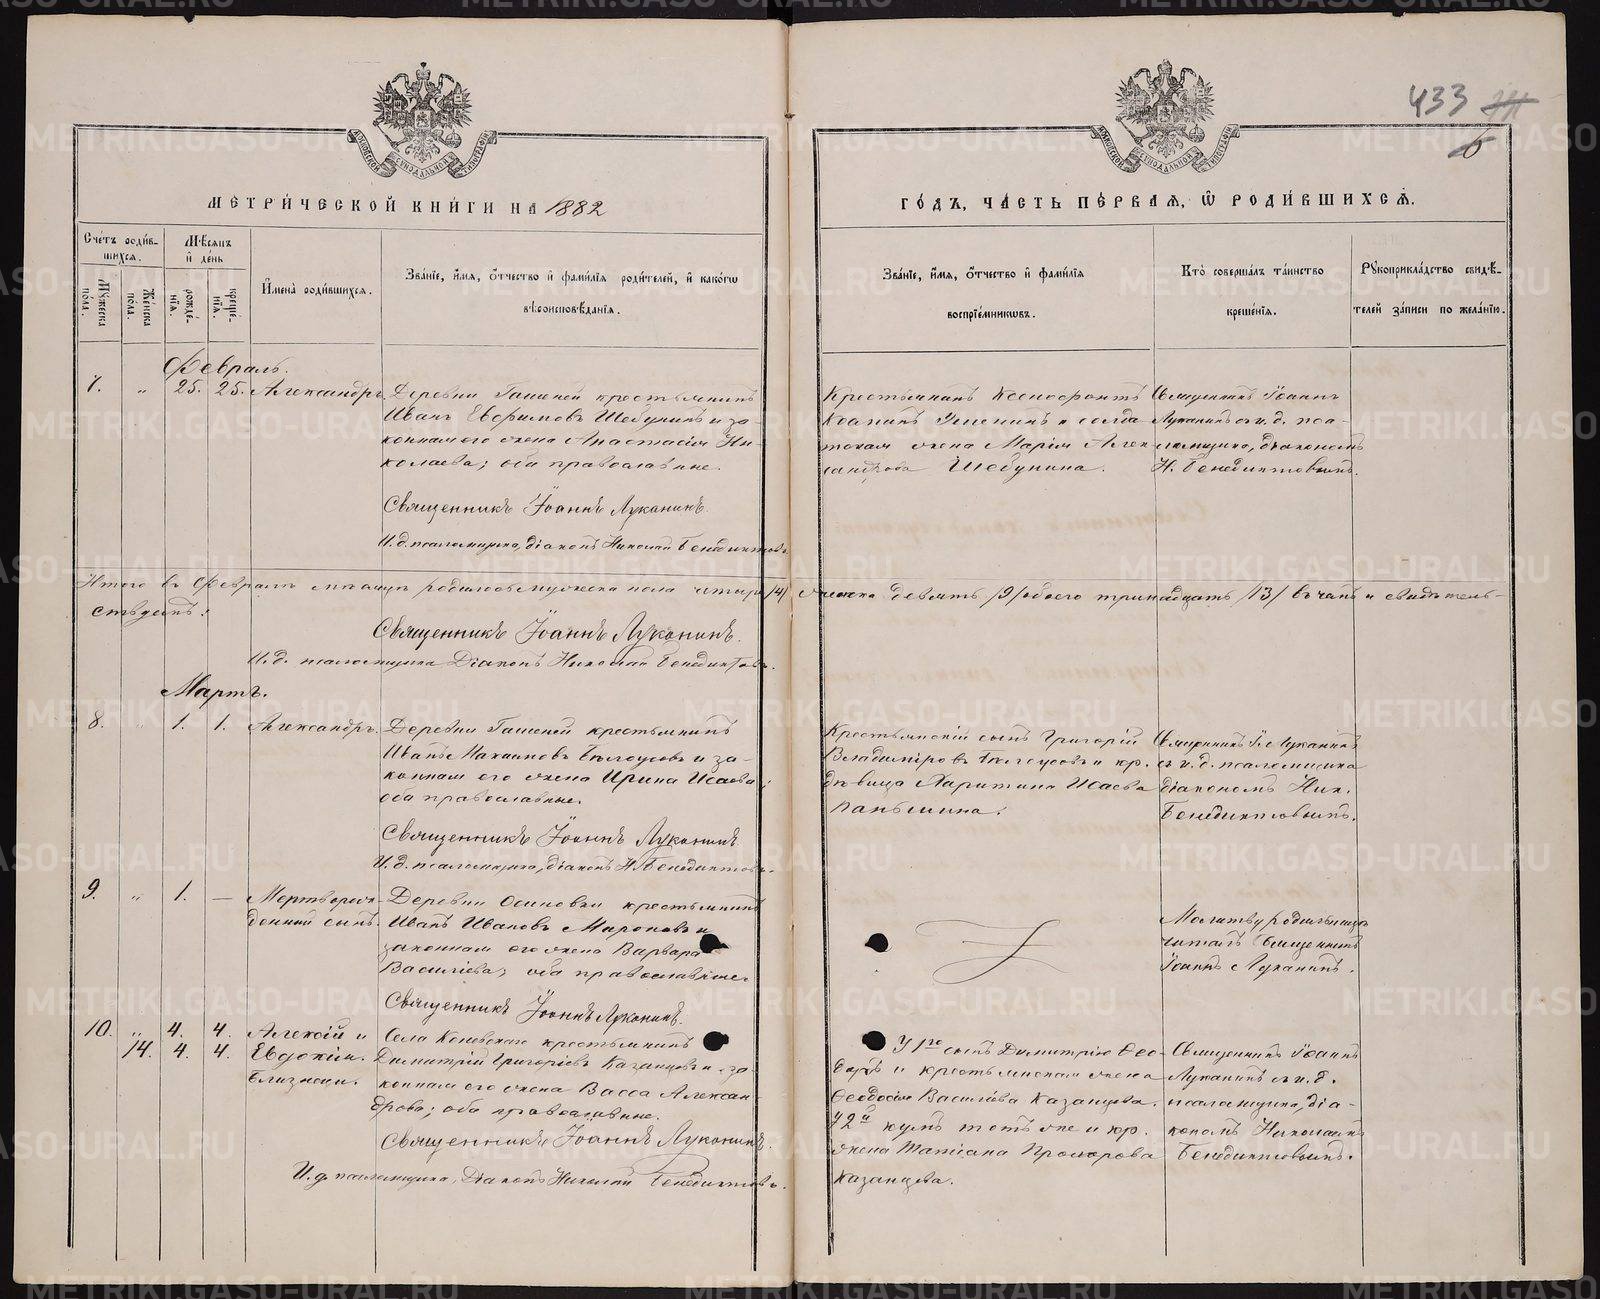 433
6
МЕТРИ́ЧЕСКОЙ КНИ́ГИ НА 1882
ГО́ДЪ, ЧА́СТЬ ПЕ́РВАЯ, Ѽ РОДИ́ВШИХСЯ.
Сче́тъ роди́в-
шихся.
Мѣсяцъ
и҆ день
Му́жеска
по́ла.
Же́нска
по́ла.
рожде́-
нїя.
креще́-
нїя.
И҆мена̀ роди́вшихся.
Зва́нїе, и҆́мя, ѻ҆́тчество и҆ фами́лїя роди́телей, и҆ како́гѡ
вѣроисповѣ́данїя.
Зва́нїе, и҆́мя, ѻ҆́тчество и҆ фами́лїя
воспрїе́мникѡвъ.
Кто̀ соверша́лъ та́инство
креще́нїя.
Рꙋкоприкла́дство свидѣ́-
телей за́писи по жела́нїю.
Февраль.
7. „ 25. 25. Александръ.
Деревни Гашеней крестьянинъ
Иванъ Евфимовъ Шебунинъ и за-
конная его жена Анастасія Ни-
колаева; оба православные.
Священникъ Іоаннъ Луканинъ.
И. д. псаломщика, діаконъ Николай Бенедиктовъ.
Крестьянинъ Ксенофонтъ
и солда
тская жена Марія Алек-
сандрова Шебунина.
Священникъ Іоаннъ
Луканинъ съ и. д. пса-
ломщика, діакономъ
Н. Бенедиктовымъ.
Итого въ Февралѣ мѣсяцѣ родилось мужеска пола четыре /4/ женска девять /9/ обоего тринадцать /13/ въ чемъ и свидѣтель-
ствуемъ:
Священникъ Іоаннъ Луканинъ.
И. д. псаломщика Діаконъ Николай Бенедиктовъ.
Мартъ.
8. „ 1. 1. Александръ.
Деревни Гашеней крестьянинъ
Иванъ Бѣлоусовъ и за-
конная его жена Ирина Исаева;
оба православные.
Священникъ Іоаннъ Луканинъ.
И. д. псаломщика, діаконъ Н. Бенедиктовъ.
Крестьянскій сынъ Григорій
Владиміровъ Бѣлоусовъ и кр.
дѣвица Харитина Исаева
Паньшина.
Священникъ І. Луканинъ
съ и. д. псаломщика
діакономъ Ник.
Бенедиктовымъ.
9. „ 1. — Мертворож-
денный сынъ.
Деревни Осиновки крестьянинъ
Иванъ Ивановъ Мироновъ и
законная его жена Варвара
Василіева; оба православные.
Священникъ Іоаннъ Луканинъ.
Молитву родильницѣ
читалъ Священникъ
Іоаннъ Луканинъ.
10. „ 4. 4. Алексій и
14. 4. 4. Евдокія.
близнецы.
Села Коневскаго крестьянинъ
Димитрій Григоріевъ Казанцевъ и за-
конная его жена Васса Алексан-
дрова; оба православные.
Священникъ Іоаннъ Луканинъ.
И. д. псаломщика, Діаконъ Николай Бенедиктовъ.
У 1го сынъ Димитрію Фео-
доръ и крестьянская жена
Феодосія Василіева Казанцева.
У 2й кумъ тотъ же и кр.
жена Татіана Прохорова
Казанцева.
Священникъ Іоаннъ
Луканинъ съ и. д.
псаломщика, діа-
кономъ Николаемъ
Бенедиктовымъ.